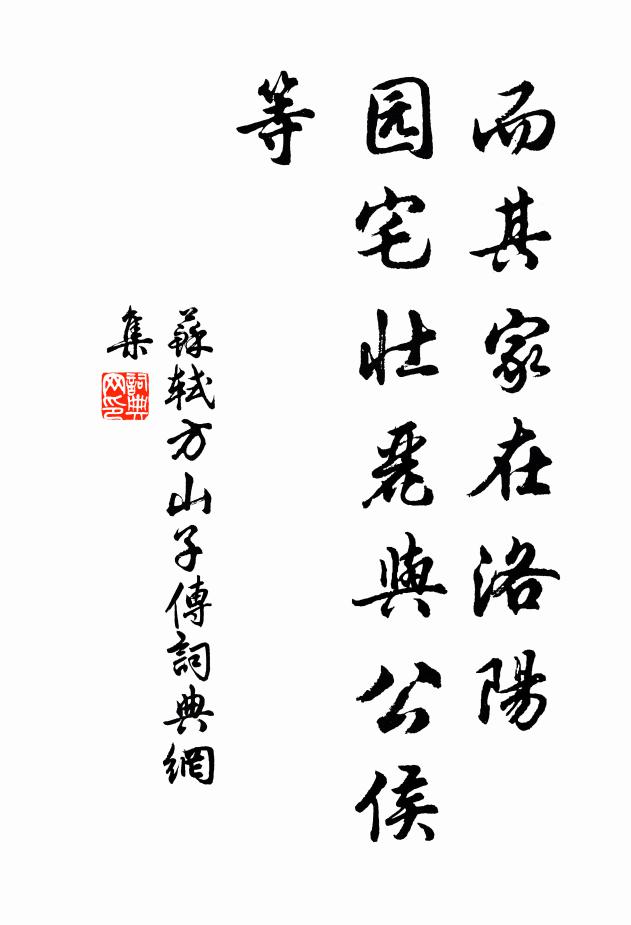 而其家在洛陽
园宅壮麗與公侯
等
蘇軾方山子傳詞典網
集
詞典
网印